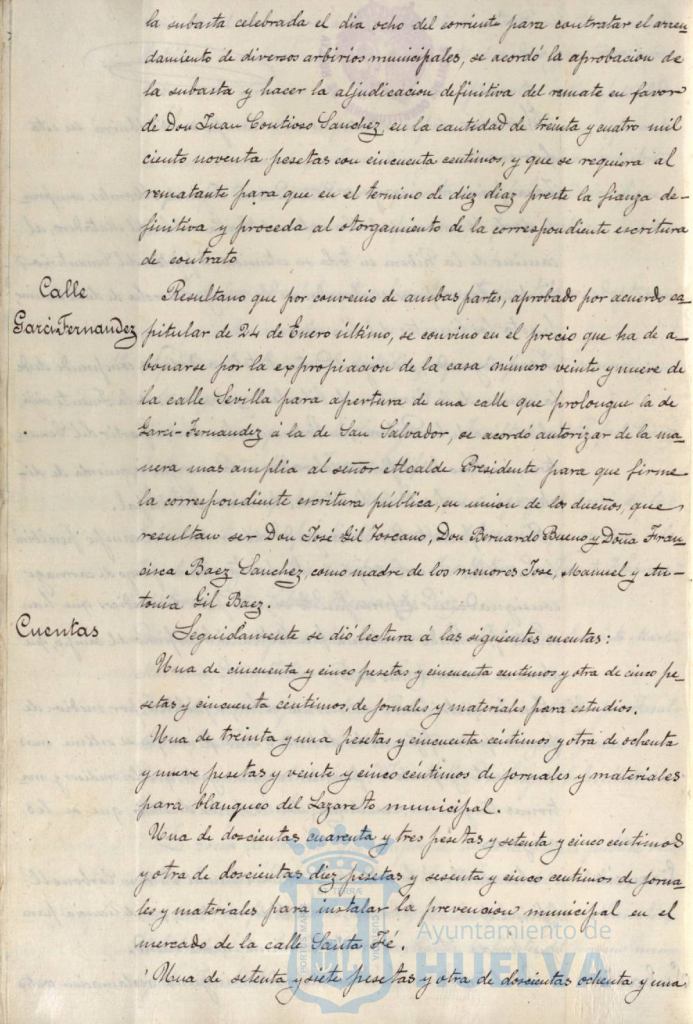 la subasta celebrada el dia ocho del corriente para contratar el arren-
damiento de diversos arbirios municipales, se acordó la aprobacion de
la subasta y hacer la aljudicacion definitiva del remate en favor
de Don Juan Contioso Sanchez, en la cantidad de treinta y cuatro mil
ciento noventa pesetas con cincuenta centimos, y que se requiera al
rematante para que en el termino de diez diaz preste la fianza de-
finitiva y proceda al otorgamiento de la correspondiente escritura
de contrato
Calle
Garci-Fernandez
Resultano que por convenio de ambas partes, aprobado por acuerdo ca-
pitular de 24 de Enero último, se convino en el precio que ha de a-
bonarse por la expropiacion de la casa número veinte y nueve de
la calle Sevilla para apertura de una calle que prolongue la de
Garci-Fernandez á la de San Salvador, se acordó autorizar de la ma-
nera mas amplia al señor Alcalde Presidente para que firme
la correspondiente escritura pública, en union de los dueños, que
resultan ser Don José Gil Toscano, Don Bernardo Bueno y Doña Fran-
cisca Baez Sanchez, como madre de los menores Jose, Manuel y An-
tonia Gil Baez.
Cuentas
Seguidamente se dió lectura á las siguientes cuentas:
Una de cincuenta y cinco pesetas y cincuenta centimos y otra de cinco pe-
setas y cincuenta céntimos, de jornales y materiales para estudios.
Una de treinta y una pesetas y cincuenta céntimos y otra de ochenta
y nueve pesetas y veinte y cinco céntimos de jornales y materiales
para blanqueo del Lazareto municipal.
Una de doscientas cuarenta y tres pesetas y setenta y cinco céntimos
y otra de doscientas diez pesetas y sesenta y cinco centimos de jorna-
les y materiales para instalar la prevencion municipal en el
mercado de la calle Santa Fé.
Una de setenta y siete pesetas y otra de doscientas ochenta y una
Ayuntamiento de
HUELVA